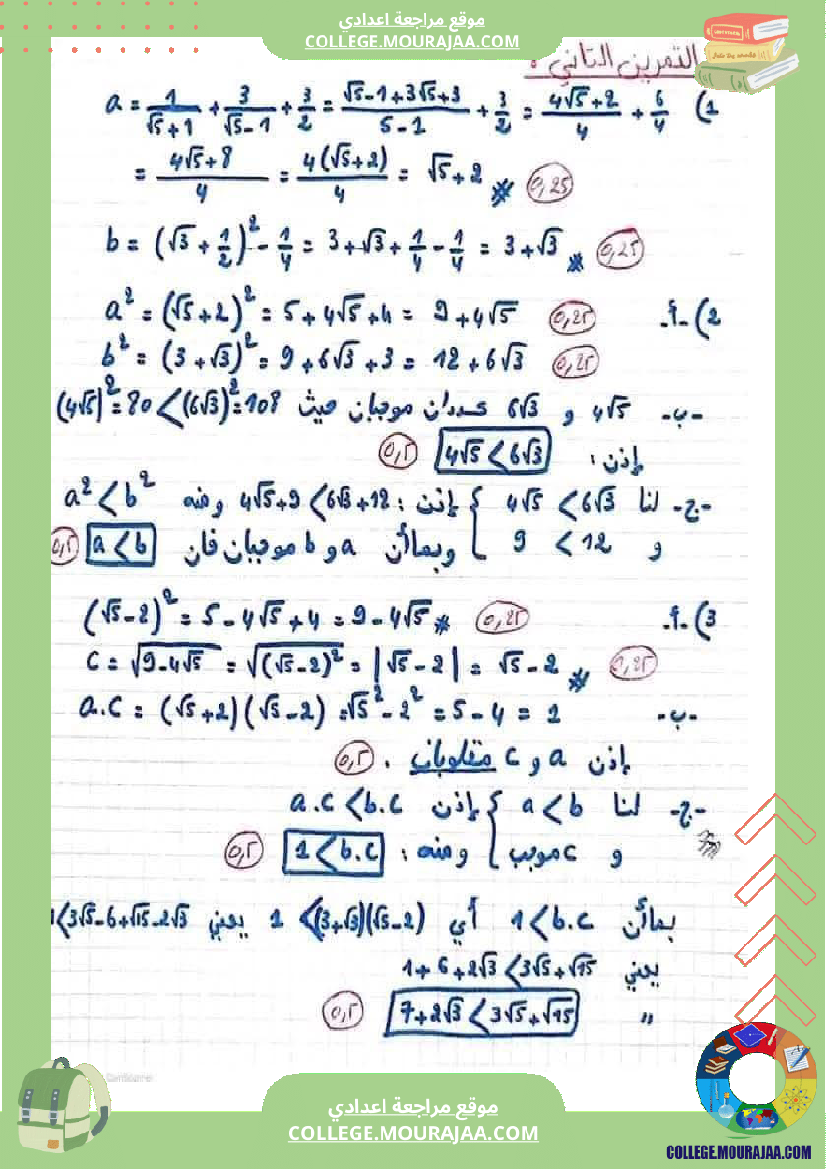 موقع مراجعة اعدادي
COLLEGE.MOURAJAA.COM
التمرين الثاني :
1) a = 1/(√5+1) + 3/(√5-1) + 3/2 = (√5-1+3√5+3)/(5-1) + 3/2 = (4√5+2)/4 + 6/4
= (4√5+8)/4 = 4(√5+2)/4 = √5+2 * 0,25
b = (√3 + 1/2)² - 1/4 = 3+√3+1/4-1/4 = 3+√3 * 0,25
2) أ- a² = (√5+2)² = 5+4√5+4 = 9+4√5 0,25
b² = (3+√3)² = 9+6√3+3 = 12+6√3 0,25
ب- 4√5 و 6√3 عددان موجبان حيث (4√5)²=80<(6√3)²=108
إذن : 4√5<6√3 0,5
ج- لنا { 4√5 <6√3 إذن : 4√5+9 <6√3+12 ومنه a²<b²
و 9 <12 وبمأن a و b موجبان فان a<b 0,5
3) أ- (√5-2)² = 5-4√5+4 = 9-4√5 * 0,25
c = √(9-4√5) = √((√5-2)²) = |√5-2| = √5-2 * 0,25
ب- a.c = (√5+2)(√5-2) = √5²-2² = 5-4 = 1
إذن a و c مقلوبان . 0,5
ج- لنا { a<b إذن a.c<b.c
و c موجب ومنه : 1<b.c 0,5
بمأن 1<b.c أي 1<(3+√3)(√5-2) يعني 1<3√5-6+√15-2√3
يعني 1+6+2√3<3√5+√15
" 7+2√3<3√5+√15 0,5
موقع مراجعة اعدادي
COLLEGE.MOURAJAA.COM
COLLEGE.MOURAJAA.COM